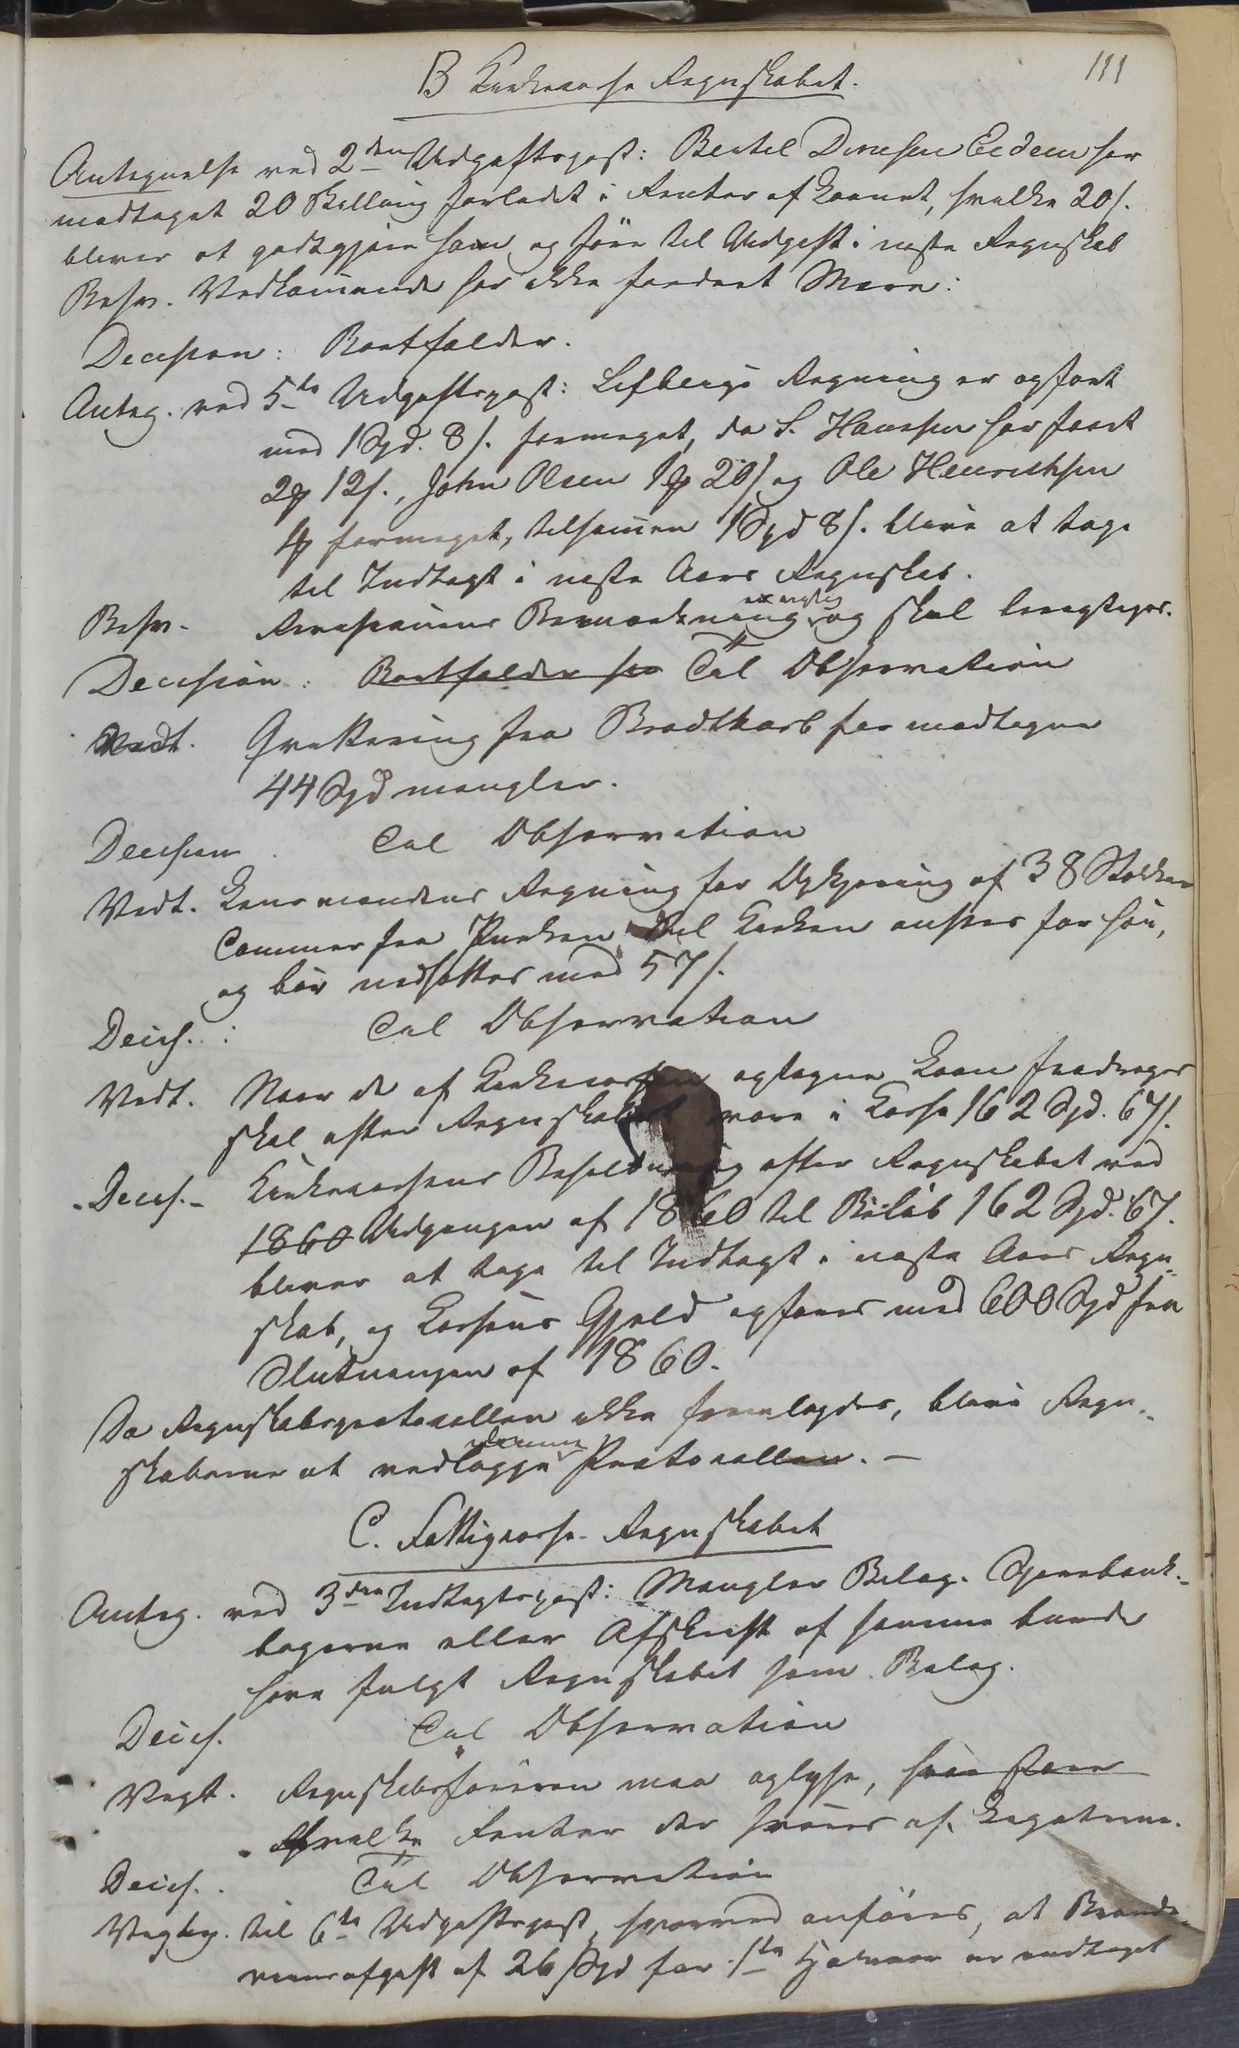 111
B Kirkecasse Regnskabet.
Antegnelse ved 2den Udgiftspost: Bertel Dinesen Eidem har
modtaget 20 Skilling forlidet i Renter af Laanet, hvilke 20 s.
bliver at godtgjøre ham og føre til Udgift i næste Regnskab
Besv. Vedkommende har ikke fordret Mere:
Decision: Bortfalder.
Anteg. ved 5te Udgiftspost: Lysbergs Regning er opført
med 1 Spd. 8 s. formeget, da S. Hansen har faaet
2 ₰ 12 s., John Olsen 1 ₰ 20 s og Ole Henrichsen
1 ₰ formeget, tilsammen 1 Spd 8 s. blive at tage
til Indtægt i næste Aars Regnskab.
Besv. Revisionens Bemærkning er rigtig og skal berigtiges.
Decision: Bortfalder Til Observation
Vedt. Qvittering fra Brodtkorb for modtagne
44 Spd mangler.
Decision Til Observation
Vedt. Lensmandens Regning for Opkjøring af 38 Stokker
Tømmer fra Fjæren til Kirken ansees for høi,
og bør nedsættes med 57 s.
Decis.: Til Observation
Vedt. Naar de af Kirkecassen optagne Laan fradrages
skal efter Regnskabet være i Casse 162 Spd. 67 s.
Decis. - Kirkecassens Beholdning efter Regnskabet ved
1860 Udgangen af 1860 til Beløb 162 Spd. 67.
bliver at tage til Indtægt i næste Aars Regn-
skab, og Cassens Gjæld opføres med 600 Spd fra
Slutningen af 1860.
Da Regnskabsprotocollen ikke fremlagdes, blive Regn-
skaberne at vedlægge denne Protocollen. -
C. Fattigcasse-Regnskabet
Anteg. ved 3die Indtægtspost: Mangler Bilag. Sparebank-
bøgerne eller Afskrift af samme burde
have fulgt Regnskabet som Bilag.
Decis. Til Observation
Vegt. Regnskabsføreren maa oplyse,
hvilke Renter der svares af Legaterne.
Decis. Til Observation
til 6te Udgiftspost, hvorved anføres, at Brænde-
viinsafgift af 26 Spd for 1ste Halvaar er modtaget